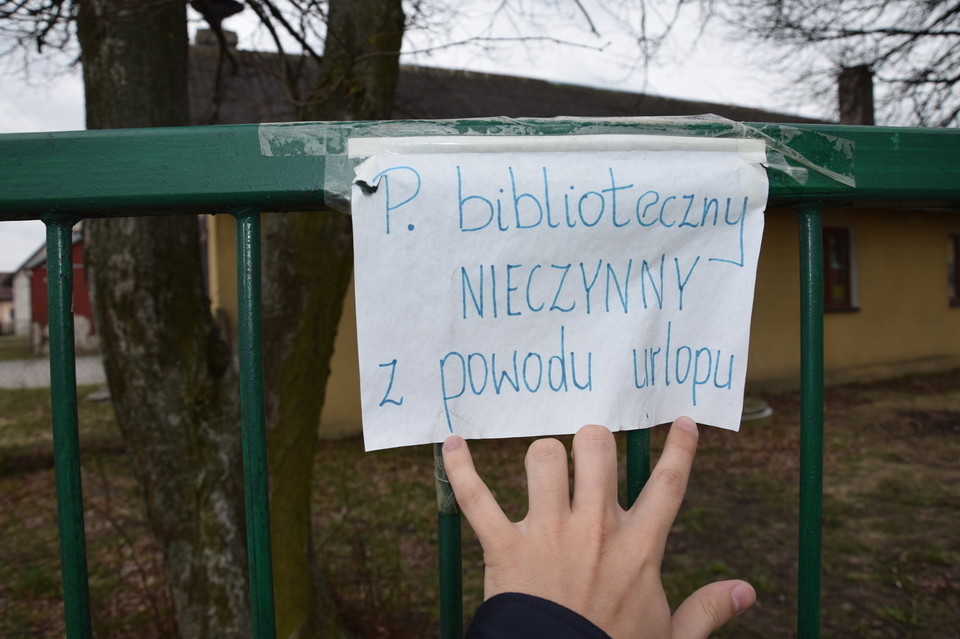 P. biblioteczny
NIECZYNNY
z powodu urlopu